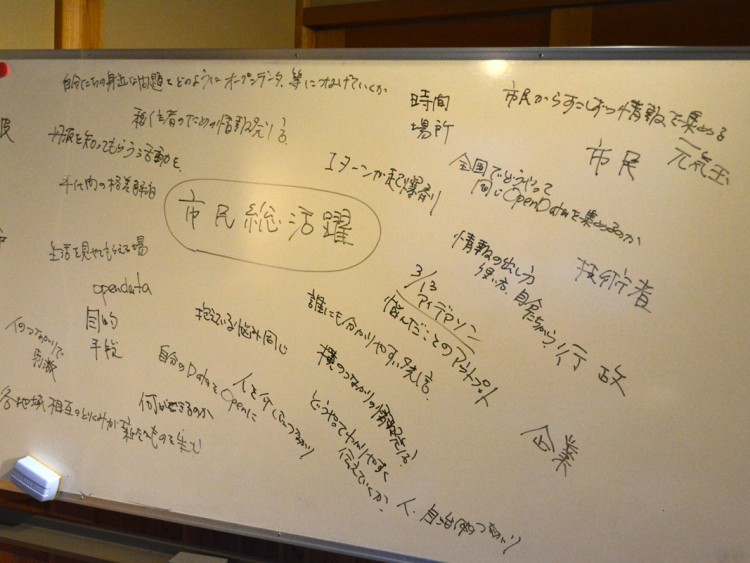 自分たちの身近な問題をどのようにオープンデータ等につなげていくか
移住者のための情報発信
丹波を知ってもらう活動を
年代間の格差解消
市民総活躍
Iターンが起爆剤
時間
場所
市民からすこしずつ情報を集める
元気玉
市民
全国でどうやって
同じOpenDataを集めるのか
情報の出し方
使い方、自分たちから?
技術者
行政
企業
生活を見せてもらえる場
opendata
目的
手段
人のつながりで
抱えている悩み同じ
自分のDataをOpenに
何ができるのか
各地域相互のとりくみが新たなものを生む
3/13
アイデアソン
悩んだことのアウトプット
誰にも分かりやすい発信
横のつながりの情報発信
どうやってわかりやすく
伝えていくか?
人、自治体のつながり